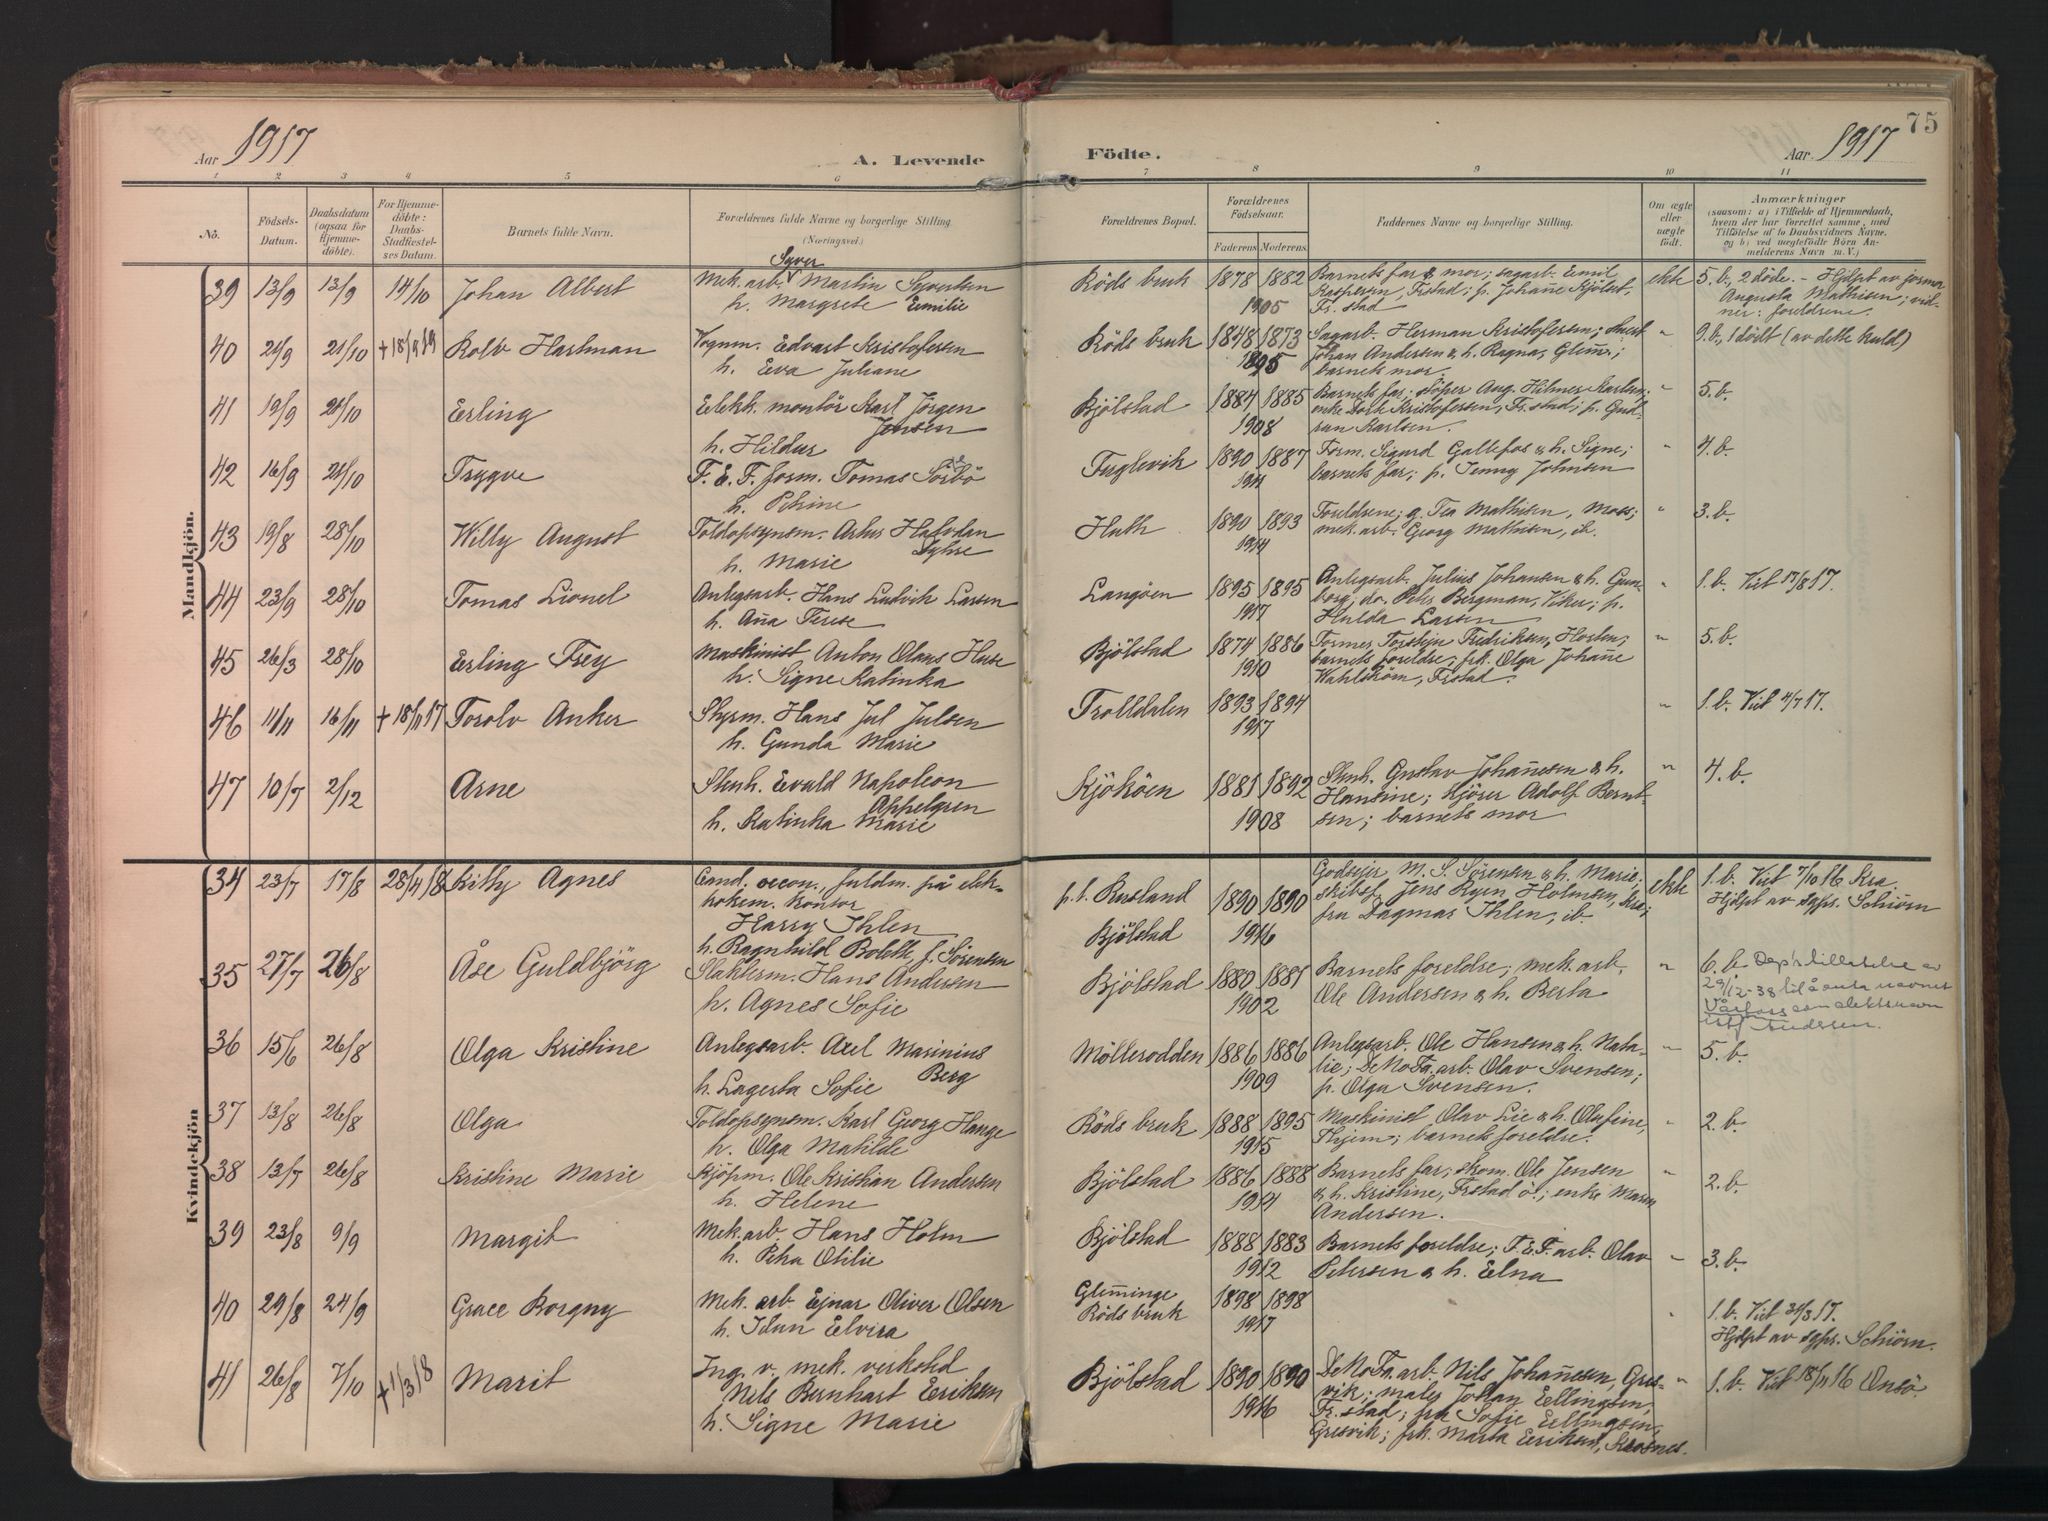 Aar 1917
A. Levende Födte.
Aar 1917
75
1 2 3 4 5 6 7 8 9 10 11
Nô.
Födsels-Datum.
Daabsdatum (ogsaa for Hjemmedöbte).
For Hjemmedöbte: Daabs-Stadfæstelses Datum.
Barnets fulde Navn.
Forældrenes fulde Navne og borgerlige Stilling. (Næringsvei.)
Forældrenes Bopæl.
Forældrenes Födselsaar.
Faderens. Moderens.
Faddernes Navne og borgerlige Stilling.
Om ægte eller uægte födt.
Anmærkninger
(saasom: a) i Tilfælde af Hjemmedaab, hvem der har forrettet samme, med Tilföielse af to Daabsvidners Navne. og b) ved uægtefödte Börn Anmelderens Navn m. V.)
Mandkjön.
39 13/9 13/9 14/10 Johan Albert
Mek. arb. Syver Martin Syvertsen
h. Margrete Emilie
Röds bruk 1878 1882
1905
Barnets far & mor; sagarb. Emil
Kaspersen, Frstad; p. Johanne Kjölset,
Fr.stad
ekte
5. b., 2 döde. - Hjdpt av jorma
Augusta Mathisen; vid-
ner: foreldrene.
40 21/9 21/10 + 18/9 19 Rolv Hartman
Vognm. Edvart Kristofersen
h. Eva Juliane
Röds bruk 1848 1873
1895
Sagarb. Herman Kristofersen; Snerk
Johan Andersen & h. Ragna, Glemm.;
barnets mor.
"
9. b., 1 dödt (av dette kuld)
41 19/9 21/10 Erling
Elekk. montör Karl Jörgen
Jensen
h. Hildur
Bjölstad 1884 1885
1908
Barnets far; stöper Aug. Hilmer Karlsen;
enke Dort. Kristofersen, Fr.stad; p. Gud-
run Karlsen.
"
5. b.
42 16/9 21/10 Trygve
F. E. F. form. Tomas Sörbö
h. Petrine
Fuglevik 1890 1887
1911
Form. Sigurd Gallefos & h. Signe;
barnets far; p. Jenny Johnsen
"
4. b.
43 19/8 28/10 Willy August
Toldopsynsm. Artur Halvdan
Syhre
h. Marie
Huth 1890 1893
1914
Foreldrene; g. Tea Mathisen, Moss;
mek. arb. Georg Mathisen, ib.
"
3. b.
44 23/9 28/10 Tomas Lionel
Anlegsarb. Hans Ludvik Larsen
h. Anna Terese
Langöen 1895 1895
1917
Anlegsarb. Julius Johansen & h. Gun-
borg; do. Petrs Bergman, Viker; p.
Hulda Larsen
"
1. b. Viet 17/8 17.
45 26/3 28/10 Erling Frey
Maskinist Anton Olaus Huse
h. Signe Katinka
Bjölstad 1874 1886
1910
Former Torstejn Fredriksen, Horten;
barnets foreldre; frk. Olga Johanne
Wahlström, Frstad.
"
5. b.
46 11/11 16/11 + 18/11 17 Torolv Anker
Styrm. Hans Jul Julsen
h. Gunda Marie
Trolldalen 1893 1894
1917
"
1. b. Viet 4/7 17.
47 10/7 2/12 Arne
Stenh. Evald Napoleon
Appelgren
h. Katinka Marie
Kjököen 1881 1892
1908
Stenh. Gustav Johannesen & h.
Hansine; kjörer Adolf Bernt-
sen; barnets mor
"
4. b.
Kvindekjön
34 23/7 17/8 28/4 18 Kitty Agnes
Cand. oecon., fuldm. på elek-
trokem. kontor
Harry Ihlen
h. Ragnhild Bolette, f. Sörensen
p. t. Rusland
Bjölstad
1890 1890
1916
Godsejer M. S. Sörensen & h. Marie;
skibsf. Jens Ryen Holmsen, Kra;
fru Dagmar Ihlen, ib.
ekte
1. b. Viet 7/10 16 Kra.
Hjdpt av sgpr. Schiörn
35 27/7 26/8 Åse Guldbjörg
Slakterm. Hans Andersen
h. Agnes Sofie
Bjölstad 1880 1881
1902
Barnets foreldre; mek. arb.
Ole Andersen & h. Berta
"
6. b. Dep's tillatelse av
29/12-38 til å anta navnet
som slektsnavn
istf Andersen.
36 15/6 26/8 Olga Kristine
Anlegsarb. Axel Marinius
Berg
h. Lagerta Sofie
Möllerodden 1886 1886
1909
Anlegsarb. Ole Hansen & h. Nata-
lie; DeNoFa. arb. Olav Svensen;
p. Olga Svensen.
"
5. b.
37 13/8 26/8 Olga
Toldopsynsm. Karl Georg Hauge
h. Olga Matilde
Röds bruk 1888 1895
1915
Maskinist Olav Lie & h. Olufine,
Thjem; barnets foreldre.
"
2. b.
38 13/7 26/8 Kristine Marie
Kjöpm. Ole Kristian Andersen
h. Helene
Bjölstad 1886 1888
1914
Barnets far; skom. Ole Jensen
& h. Kristine, Frstad ö.; enke Maren
Andersen.
"
2. b.
39 23/8 9/9 Margit
Mek. arb. Hans Holm
h. Petra Otilie
Bjölstad 1888 1883
1912
Barnets foreldre; F. E. F. arb. Olav
Petersen & h. Elna
"
3. b.
40 29/8 24/9 Grace Borgny
Mek. arb. Ejnar Oliver Olsen
h. Idun Elvira
Glemminge
Röds bruk
1898 1898
1917
"
1. b. Viet 31/3 17.
Hjdpt av sgpr. Schiörn.
41 26/8 7/10 + 1/3 18 Marit
Ing. v. mek. verksted
Nils Bernhart Eriksen
h. Signe Marie
Bjölstad 1890 1890
1916
DeNoFa. arb. Nils Johannesen, Gres-
vik; maler Johan Ellingsen,
Fr.stad; fru Sofie Ellingsen,
Gresvik; frk. Marta Eriksen,
"
1. b. Viet 18/11 16 Onsö.